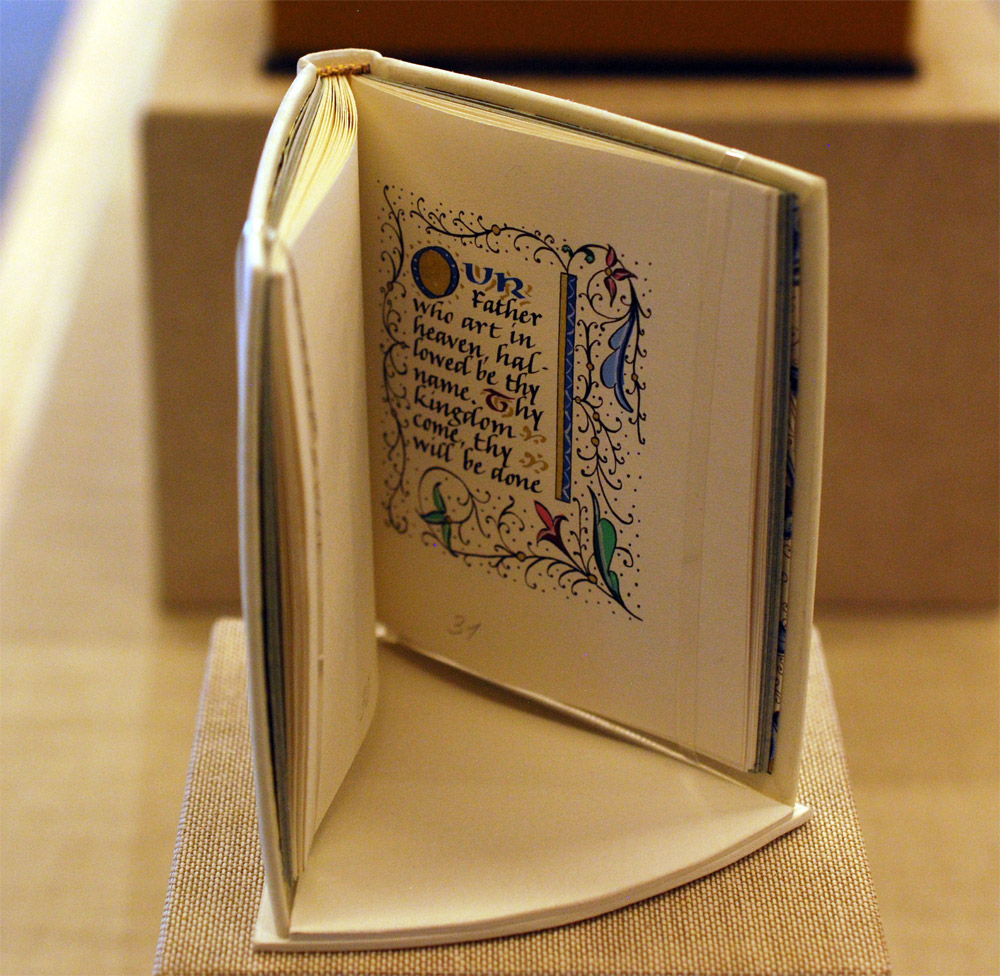 Our
Father
who art in
heaven, hal-
lowed be thy
name. Thy
kingdom
come, thy
will be done
31